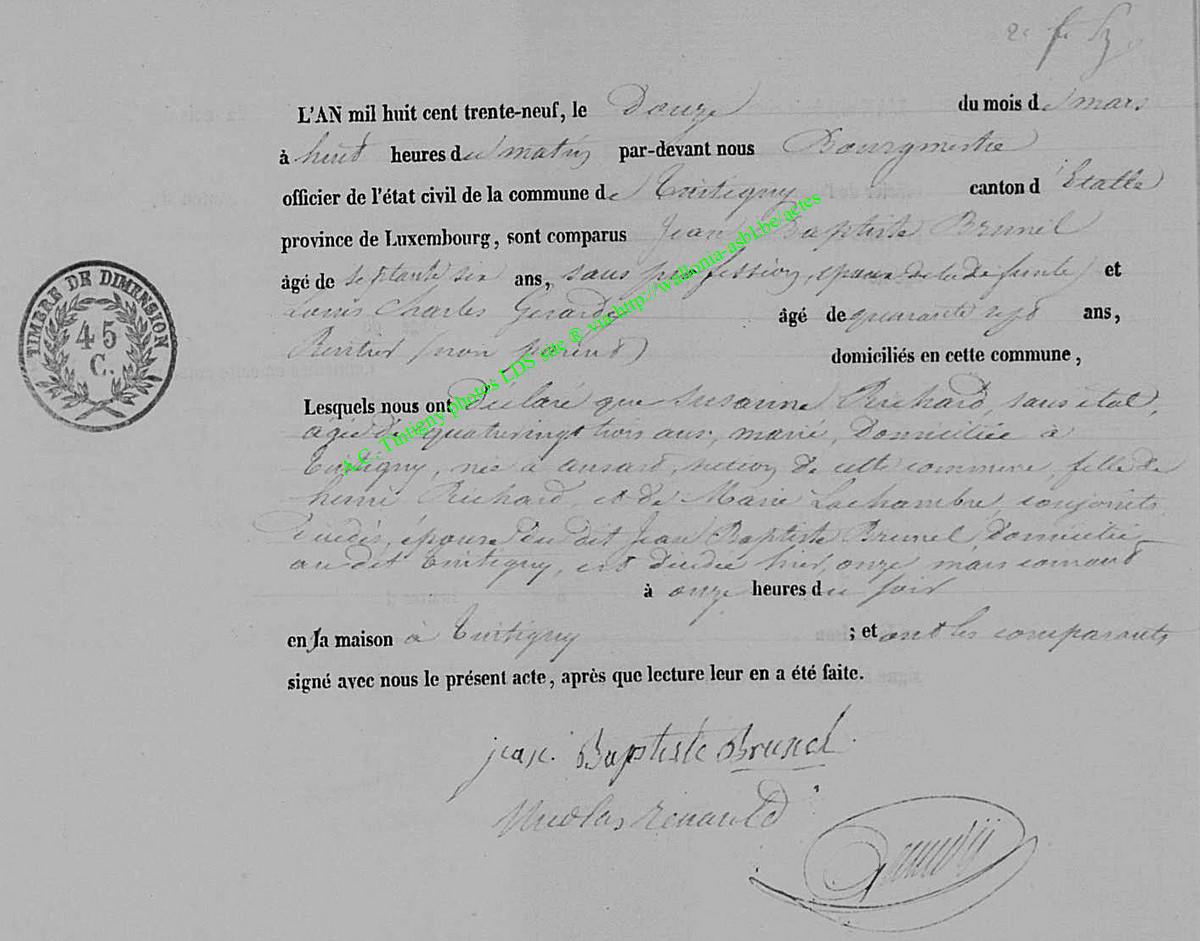 L'AN mil huit cent trente-neuf, le Douze du mois de mars
à huit heures du matin par-devant nous Bourgmestre
officier de l'état civil de la commune de Tintigny canton d'Etalle
province de Luxembourg, sont comparus Jean Baptiste Brunel
âgé de septante six ans, sans profession, époux de la défunte, et
Louis Charles Gerard âgé de quarante sept ans,
Rentier (non parent) domiciliés en cette commune,
Lesquels nous ont déclaré que Susanne Richard, sans état,
agée de quatrevingt trois ans, mariée domiciliée à
Tintigny, née à ansart, section de cette commune, fille de
henri Richard, et de Marie Lachambre, conjoints
décédés, épouse du dit Jean Baptiste Brunel domicilié
au dit Tintigny, est décédée hier, onze mars courant
à onze heures du soir
en sa maison à Tintigny ; et ont les comparants
signé avec nous le présent acte, après que lecture leur en a été faite.
TIMBRE DE DIMENSION
45
C.
A.C. Tintigny photos LDS site ® via http://wallonia-asbl.be/actes
jean Baptiste Brunel
Nicolas renauld